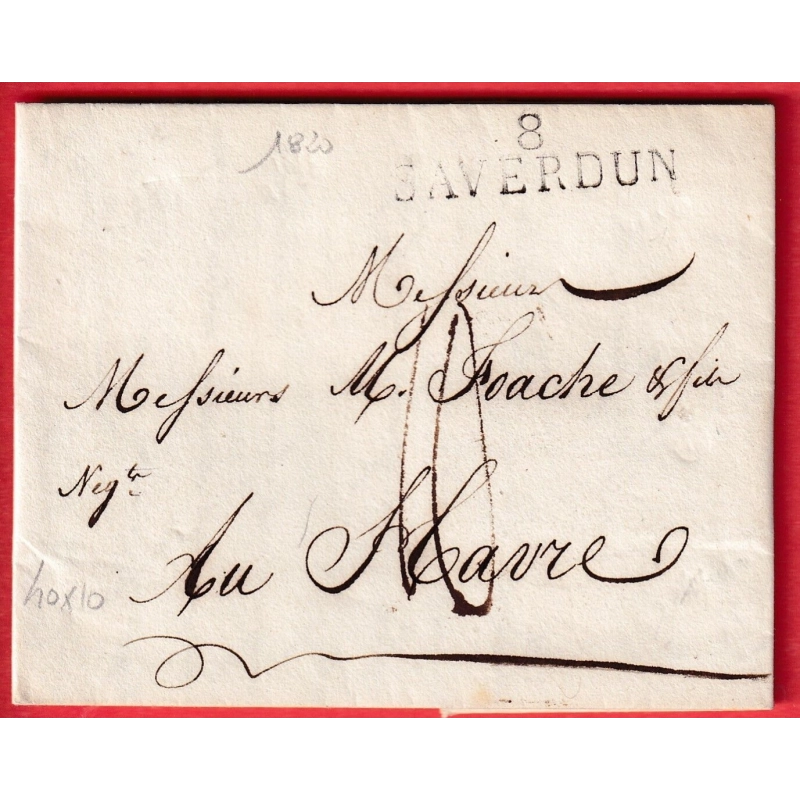 1820
8
SAVERDUN
Messieurs
Messieurs M. Foache & fils
Negts
Au Havre
40x10